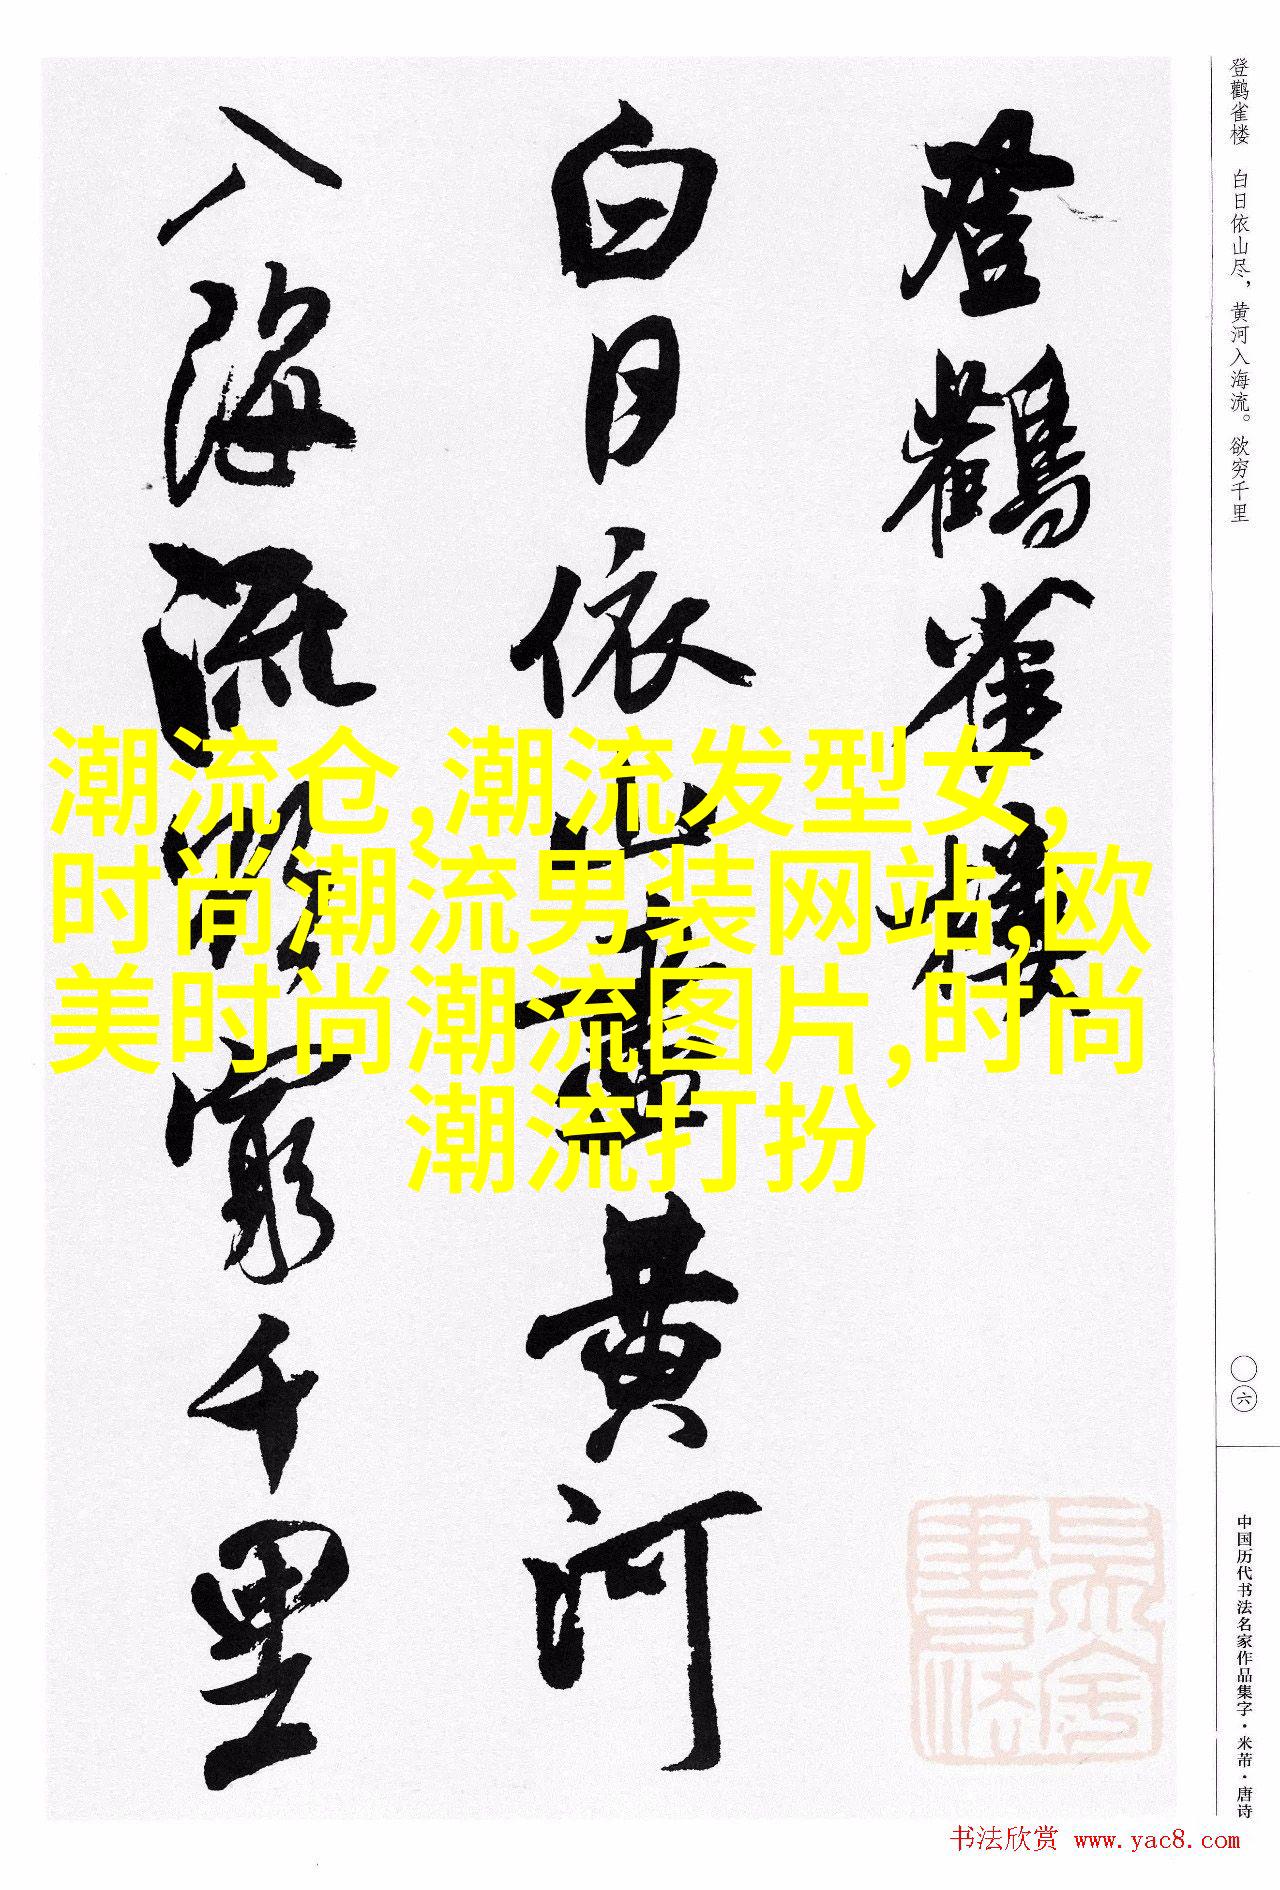 登鹳雀楼 白日依山尽，黄河入海流。欲穷千里
〇六
中国历代书法名家作品集字·米芾·唐诗
登鸛雀樓
白日依山盡黃河
入海流欲窮千里
潮流仓,潮流发型女,
时尚潮流男装网站,欧
美时尚潮流图片,时尚
潮流打扮
书法欣赏 www.yac8.com